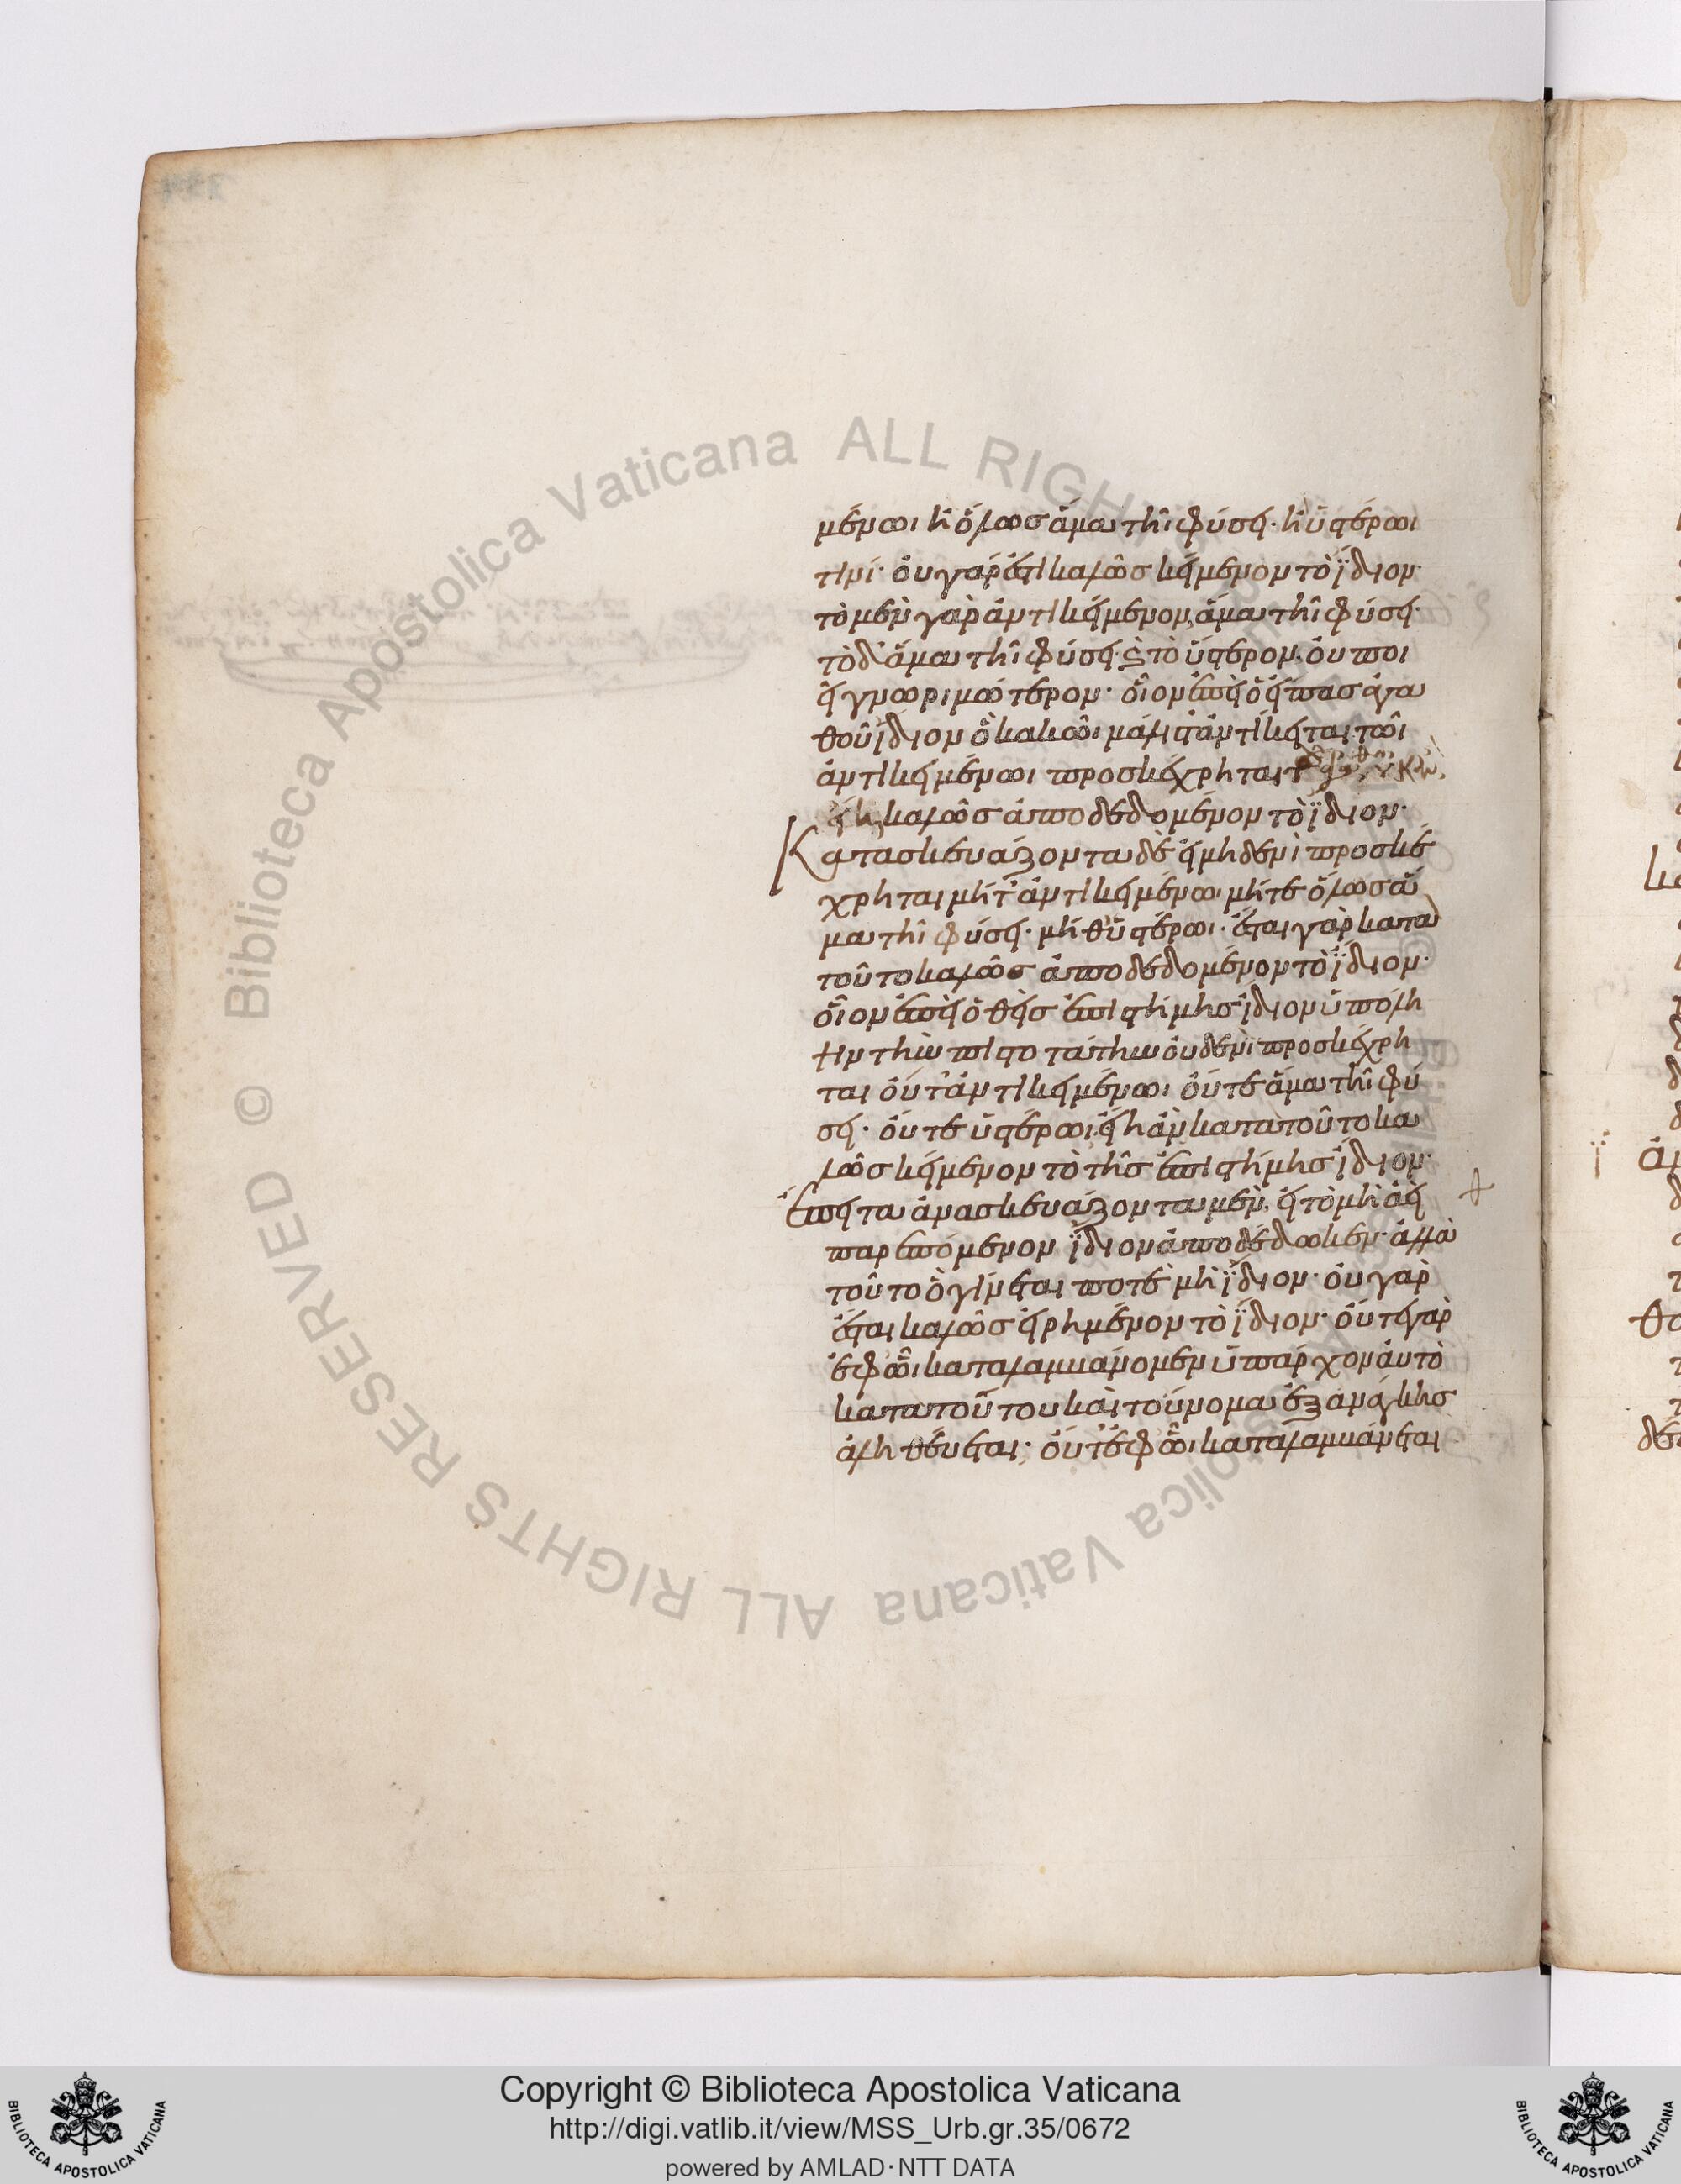 μένωι ἢ ὅλως ἅμα τῆι φύσει· ἢ ὑστέρωι
τινί· οὐ γάρ ἔσται καλῶς κείμενον τὸ ἴδιον·
τὸ μὲν γὰρ ἀντικείμενον, ἅμα τῆι φύσει·
τὸ δ' ἅμα τῆι φύσει· καὶ τὸ ὕστερον. οὐ ποι
εῖ γνωριμώτερον· οἷον ἐπεὶ ὁ εἴπας ἀγα
θοῦ ἴδιον ὃ κακῶι μάλιστ' ἀντίκειται τῶι
ἀντικειμένωι προσκέχρηται
εἴη καλῶς ἀποδεδομένον τὸ ἴδιον·
Κατασκευάζοντα δὲ εἰ μηδενὶ προσκέ
χρηται μήτ' ἀντικειμένωι μήτε ὅλως ἅ
μα τῆι φύσει· μήθ' ὑστέρωι· ἔσται γὰρ κατὰ
τοῦτο καλῶς ἀποδεδομένον τὸ ἴδιον·
οἷον ἐπεὶ ὁ θεὶς ἐπιστήμης ἴδιον ὑπόλη
ψιν τὴν πιστοτάτην οὐδενὶ προσκέχρη
ται οὔτ' ἀντικειμένωι οὔτε ἅμα τῆι φύ
σει· οὔτε ὑστέρωι, εἴη ἂν κατὰ τοῦτο κα
λῶς κείμενον τὸ τῆς ἐπιστήμης ἴδιον·
Ἔπειτα ἀνασκευάζοντα μὲν, εἰ τὸ μὴ ἀεὶ
παρεπόμενον ἴδιον ἀποδέδωκεν· ἀλλὰ
τοῦτο ὃ γίνεται ποτὲ μὴ ἴδιον· οὐ γὰρ
ἔσται καλῶς εἰρημένον τὸ ἴδιον· οὔτε γὰρ
ἐφ' ὧι καταλαμβάνομεν ὑπάρχον αὐτὸ
κατὰ τούτου καὶ τοὔνομα ἐξ ἀνάγκης
ἀληθεύεται· οὔτ' ἐφ' ὧι καταλαμβάνεται
Copyright © Biblioteca Apostolica Vaticana
http://digi.vatlib.it/view/MSS_Urb.gr.35/0672
powered by AMLAD·NTT DATA
BIBLIOTECA APOSTOLICA VATICANA
BIBLIOTECA APOSTOLICA VATICANA
© Biblioteca Apostolica Vaticana ALL RIGHTS RESERVED